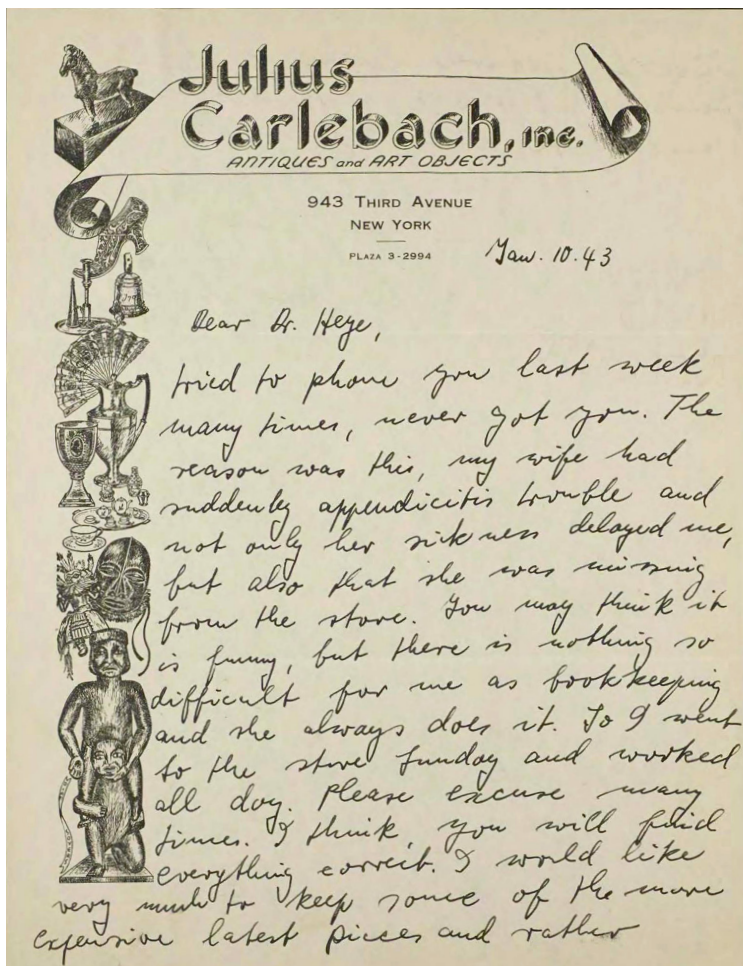 Julius
Carlebach, inc.
ANTIQUES and ART OBJECTS
943 THIRD AVENUE
NEW YORK
PLAZA 3-2994
Jan. 10.43
Dear Dr. Heye,
tried to phone you last week
many times, never got you. The
reason was this, my wife had
suddenly appendicitis trouble and
not only her sickness delayed me,
but also that she was missing
from the store. You may think it
is funny, but there is nothing so
difficult for me as bookkeeping
and she always does it. So I went
to the store Sunday and worked
all day. Please excuse many
times. I think, you will find
everything correct. I would like
very much to keep some of the more
expensive latest pieces and rather